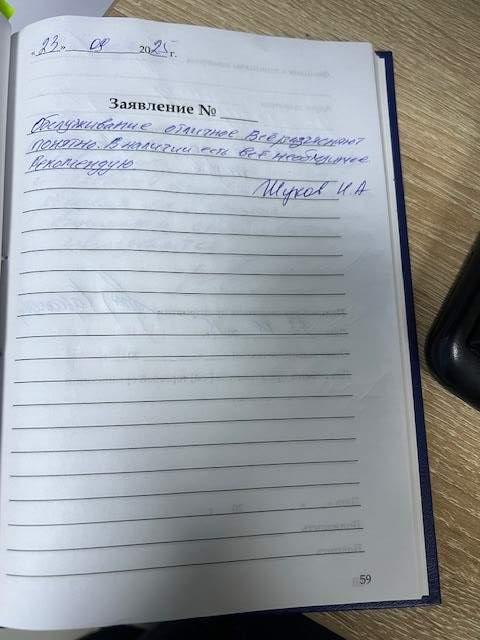 «23» 09 2025 г.
Заявление №
Обслуживание отличное Все разъясняют
понятно. В наличии есть всё необходимое
Рекомендую
Жуков И А
59